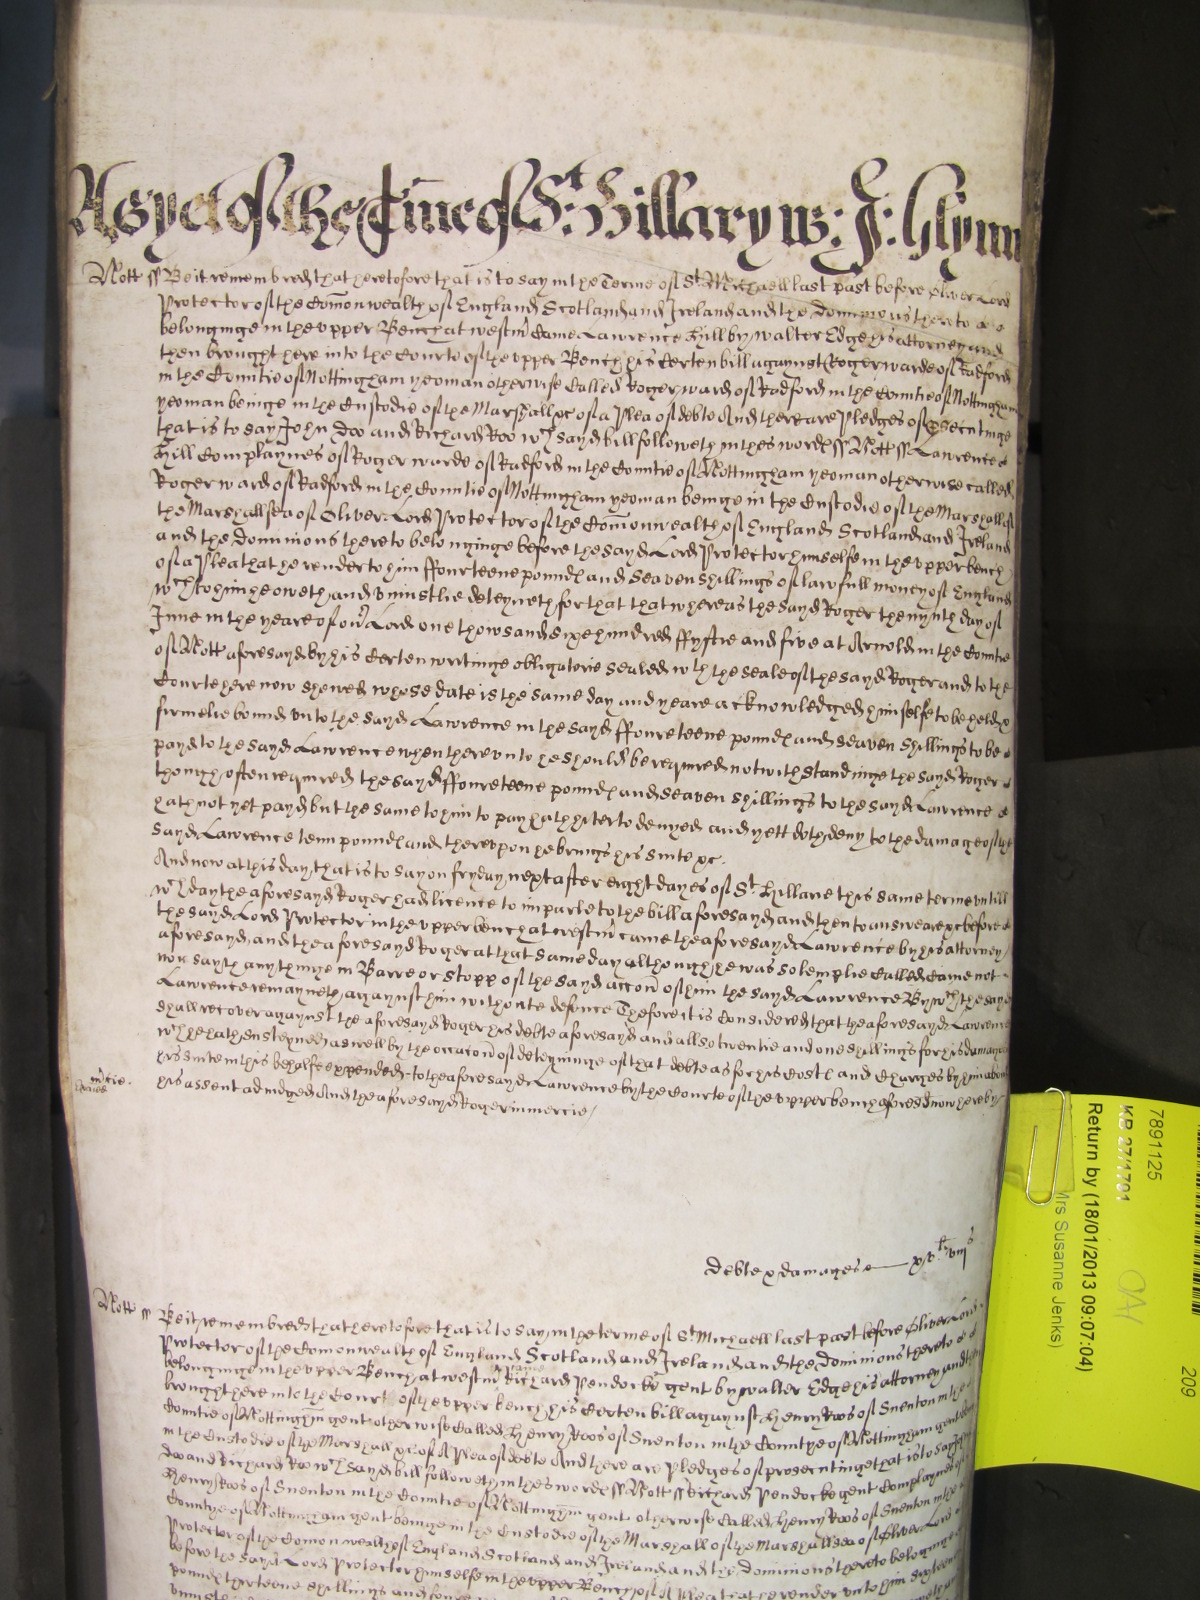 As yet of the Time of St: Hillary w: J: Glynn
Nott ss Be it remembred that heretofore that is to say in the Terme of St Michaell last past before Oliver Lord
Protector of the Comonwealth of England Scotland and Ireland and the dominions thereto
belonginge in the upper Bench at westmr Came Lawrence Hill by walter Edge his attorney and
then brought here into the Courte of the upper Bench his Certen bill against Roger warde of Radford
in the Countie of Nottingham yeoman otherwise Called Roger ward of Radford in the Countie of Nottingham
yeoman beinge in the Custodie of the Marshall &c of a Plea of debte And there are Pledges of prosecutinge
that is to say John Doo and Richard Roo wch sayd bill followeth in thes wordes ss Nott ss Lawrence
Hill Complaynes of Roger warde of Radford in the Countie of Nottingham yeoman otherwise called
Roger ward of Radford in the Countie of Nottingham yeoman beinge in the Custodie of the Marshall of
the Marshallsea of Oliver Lord Protector of the Comonwealth of England Scotland and Ireland
and the dominions thereto belonginge before the sayd Lord Protector himselfe in the upper bench
of a Plea that he render to him ffourteene pounds and seaven shillings of lawfull money of England
wch to him he oweth and uniustlie deteyneth for that that whereas the sayd Roger the nynth day of
June in the yeare of our Lord one thowsand sixe hundred ffyftie and five at Arnold in the Countie
of Nott aforesayd by his Certen writinge obligatorie sealed wth the seale of the sayd Roger and to the
Courte here now shewed whose date is the same day and yeare acknowledged himselfe to be held &
firmelie bound unto the sayd Lawrence in the sayd ffoureteene pounds and seaven shillings to be
payd to the sayd Lawrence when thereunto he should be required notwithstandinge the sayd Roger
though often required the sayd ffoureteene pounds and seaven shillings to the sayd Lawrence
hath not yet payd but the same to him to pay hath hiterto denyed and yett doth deny to the damage of the
sayd Lawrence tenn pounds and thereupon he brings his suite &c.
And now at this day that is to say on fryday next after eight dayes of St. Hillarie this same terme untill
wch day the aforesayd Roger had licence to imparle to the bill aforesayd and then to answeare &c before
the sayd Lord Protector in the upper bench at westmr came the aforesayd Lawrence by his attorney
aforesayd and the aforesayd Roger at that same day although he was solemplie Called Came not
nor sayth any thinge in Barre or stopp of the sayd accon of him the sayd Lawrence By wch the sayd
Lawrence remayneth against him withoute defence Thefore it is Considered that the aforesayd Lawrence
shall recover against the aforesayd Roger his debte aforesayd and allso twentie and one shillings for his damages
wch he hath susteyned aswell by the occacon of deteyninge of that debte as for his Costs and Charges by him about
his suite in this behalfe expended to the aforesayd Lawrence by the Courte of the upper bench aforesd now here by
mcie.
his assent adiudged And the aforesayd Roger in mercie/
debte & damages xvli viijs
Nott ss Be it remembred that heretofore that is to say in the terme of St Michaell last past before Oliver Lord
Protector of the Comonwealth of England Scotland and Ireland and the Dominions thereto
belonginge in the upper Bench at westmr Came Richard Pendocke gent by walter Edge his attorney and then
brought here into the Court of the upper bench his Certen bill against Henry Roos of Snenton in the
Countie of Nottingham gent otherwise Called Henry Roos of Snenton in the Countye of Nottingham gent
in the Custodie of the Marshall &c of A Plea of debte And there are Pledges of prosecutinge that is to say John
doo and Richard Roo wch sayd bill followeth in thes wordes ss Nott ss Richard Pendocke gent Complaynes of
Henry Roos of Snenton in the Countie of Nottingham gent otherwise Called Henry Roos of Snenton in the
Countye of Nottingham gent beinge in the Custodie of the Marshall of the Marshallsea of Oliver Lord
Protector of the Comonwealth of England Scotland and Ireland and the Dominions thereto belonginge
before the sayd Lord Protector himselfe in the upper Bench of A Plea that he render unto him
pounds thirteene shillings and
7891125
KB 27/1791
Return by (18/01/2013 09:07:04)
Mrs Susanne Jenks)
209